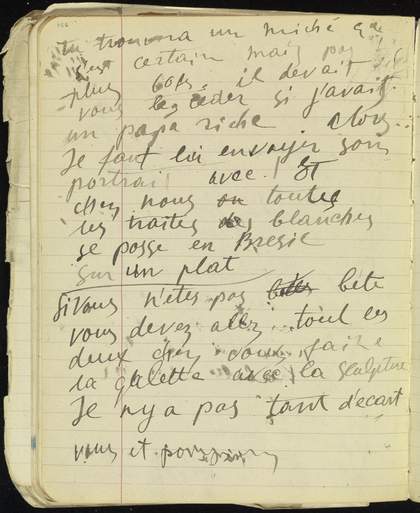 tu trouvera un miché que
c'est certain mais pas
plus 60 fr. il devait
vous les ceder si j'avais
un papa riche alors
Je faut lui envoyer son
portrait avec ST
chez nous ou toutes
les traites des blanches
se passe en Bresie
sur un plat
Si vous n'etes pas bete
vous devez allez tout les
deux chez vous faire
la galette avec la sculpture
Je n'y a pas tant d'ecart
vous et